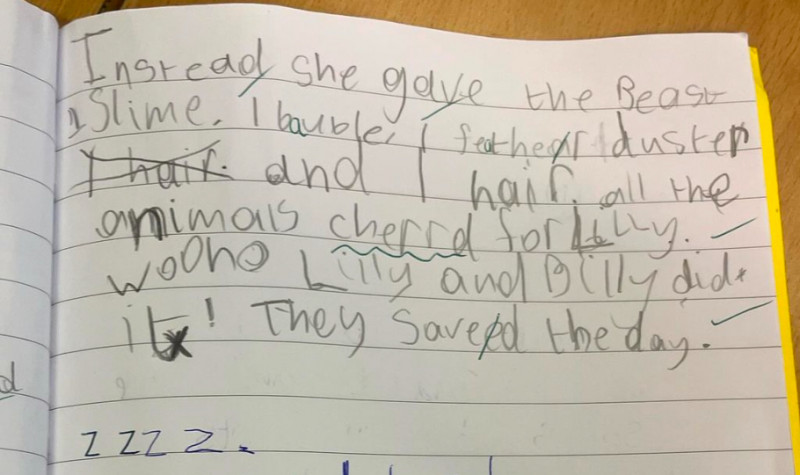 Instead she gave the Beast
1 Slime. 1 bauble, 1 feather duster
1 hair. and 1 hair. all the
animals cherrd for Lilly.
woOho Lilly and Billy did
it! They saved the day.
d
z z z z.